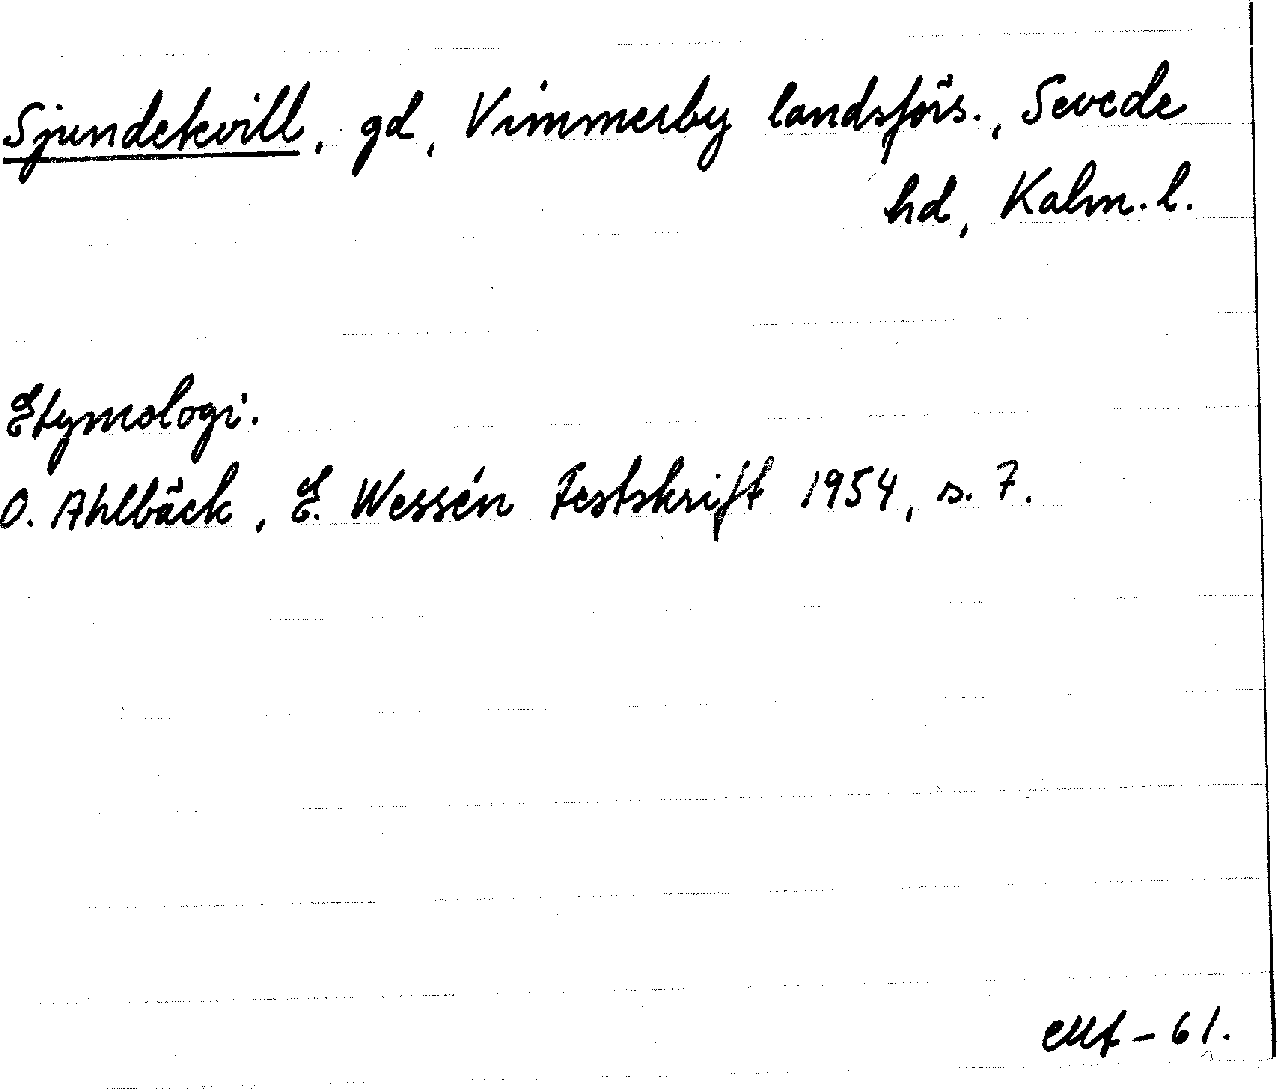 Sjundekvill, gd, Vimmerby landsförs., Sevede
hd, Kalm. l.
Etymologi.
O. Ahlbäck, E. Wessén Festskrift 1954, s. 7.
-61.